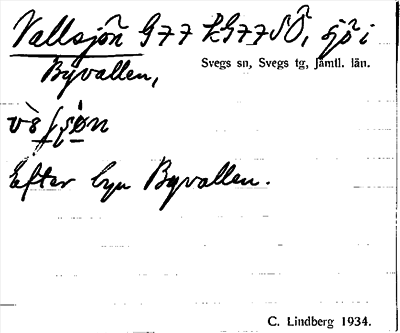 Vallsjön G77 kG77SÖ, sjö i
Byvallen,
Svegs sn, Svegs tg, Jämtl. län.
Efter byn Byvallen.
C. Lindberg 1934.